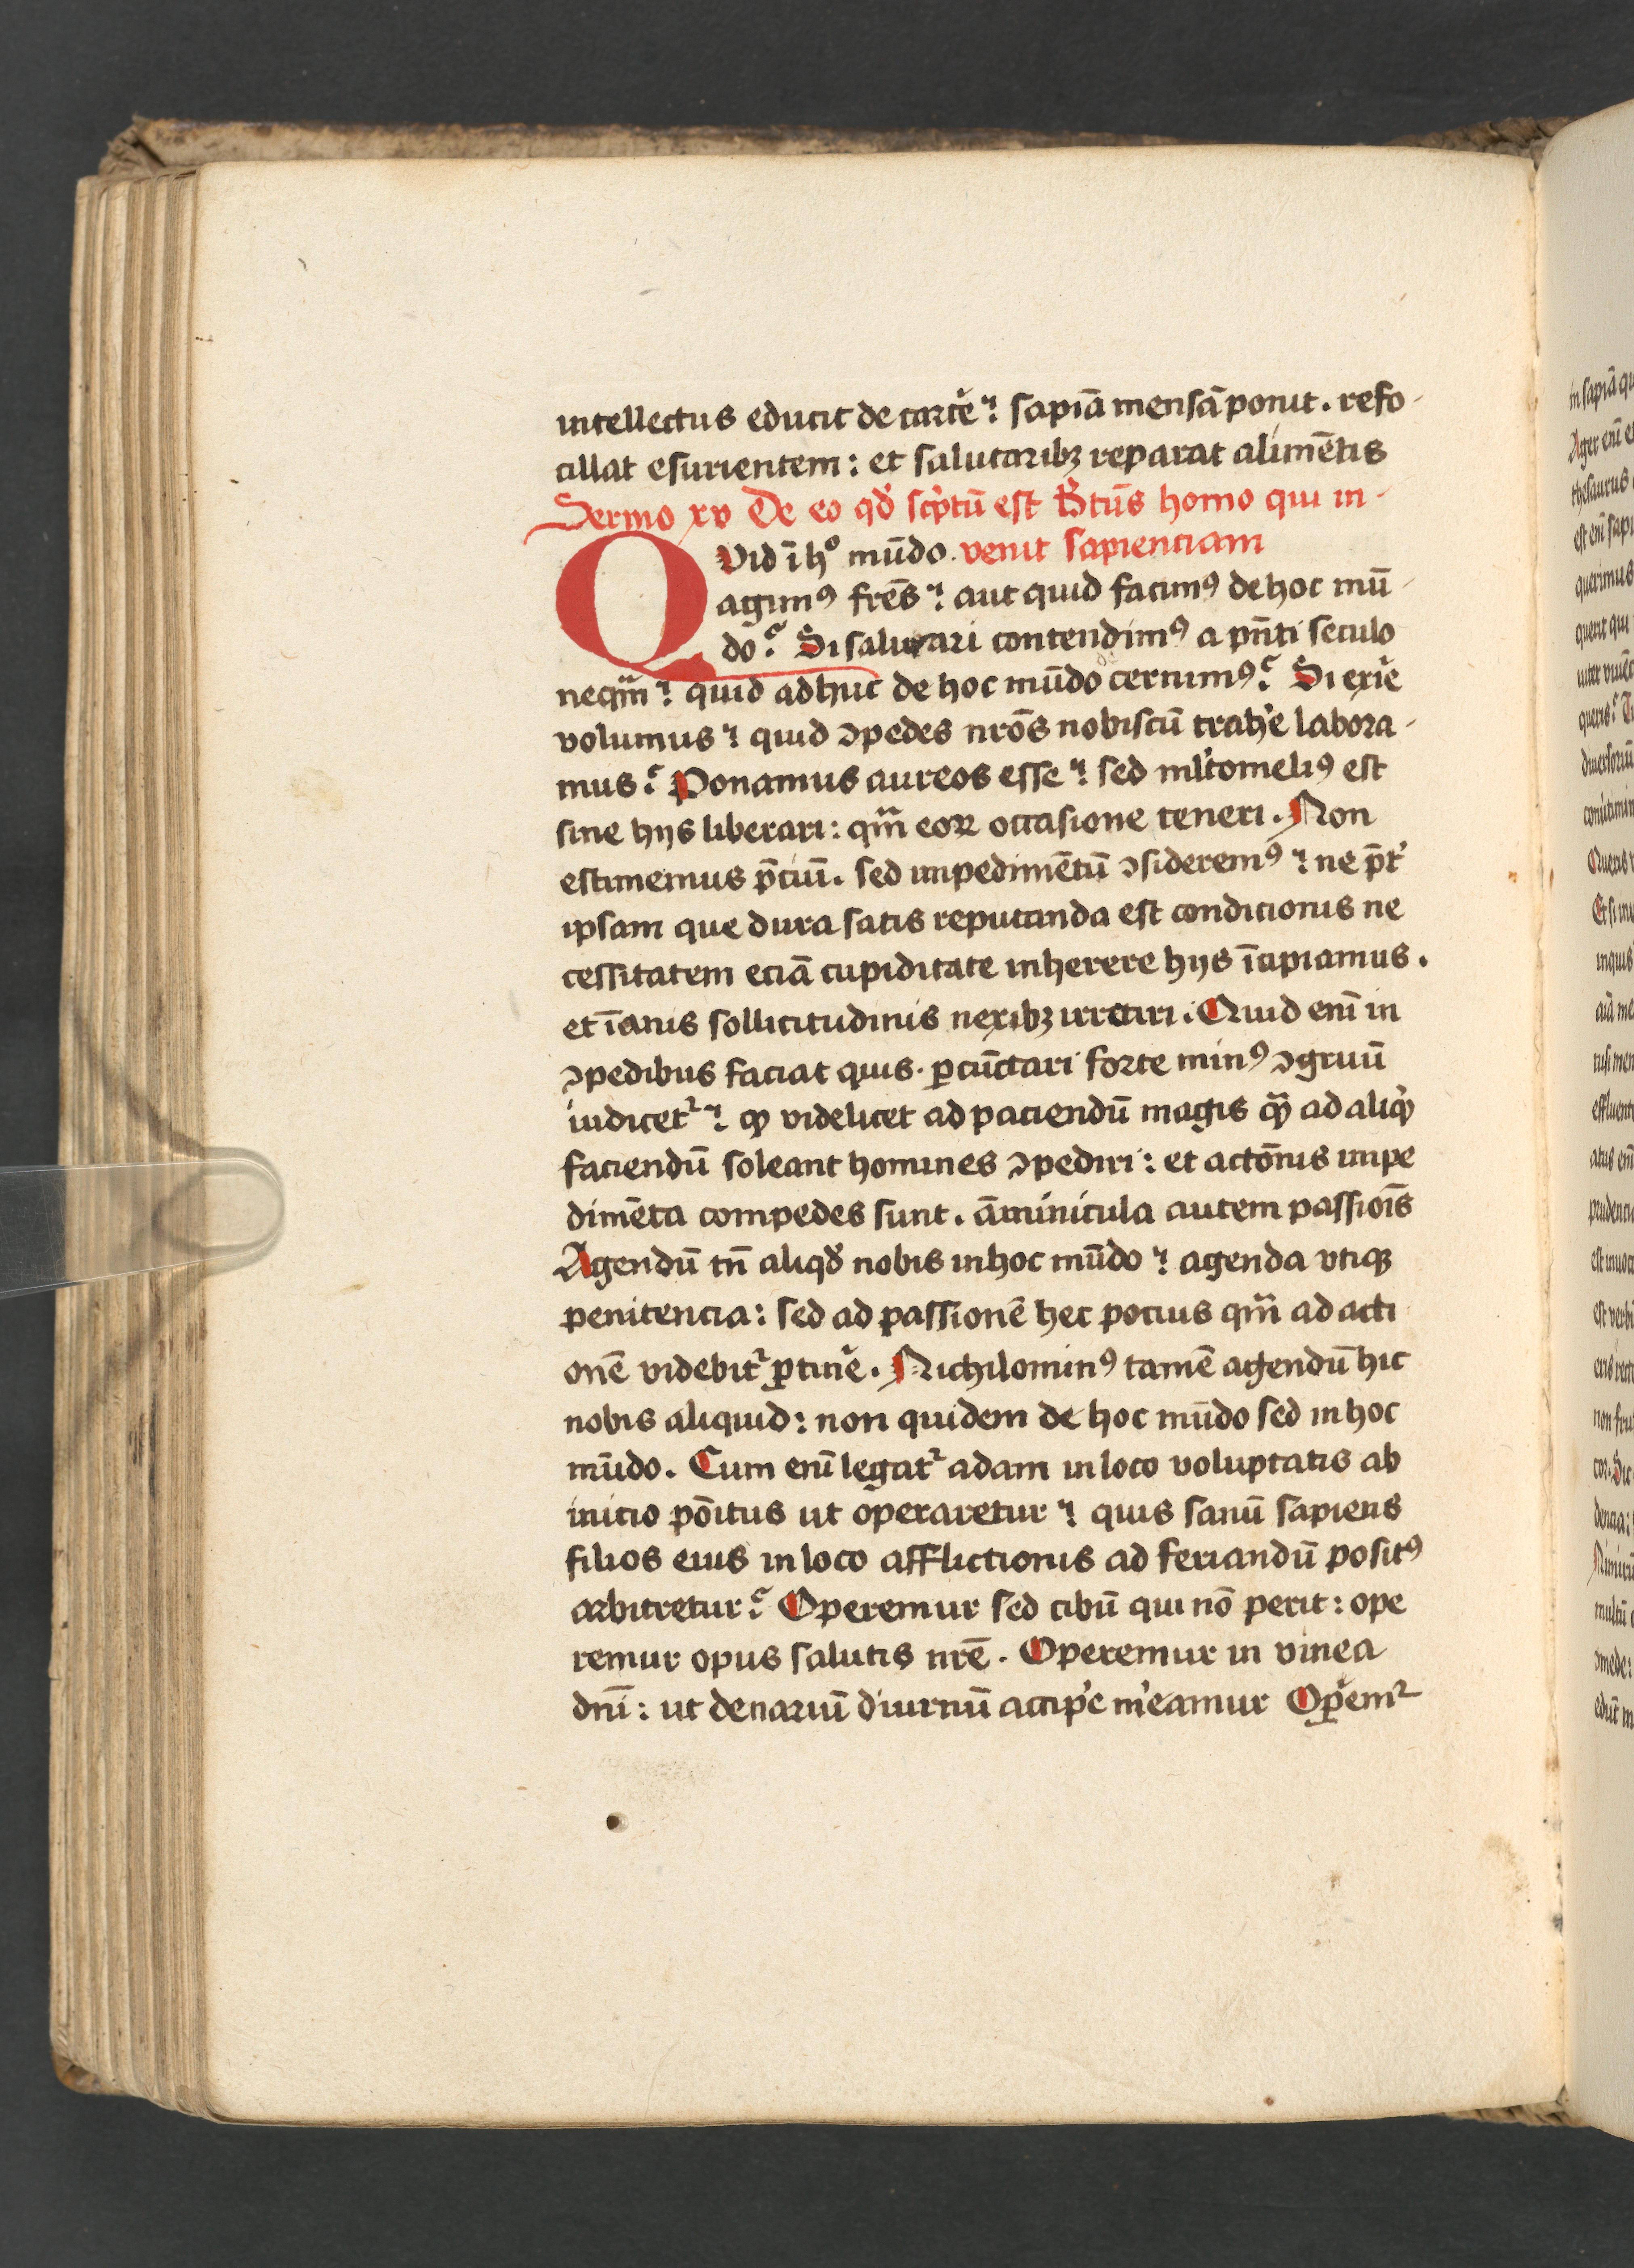 intellectus educit de carcē sapiā mensā ponit. refo-
cillat esurientem: et salutaribꝫ reparat alimētis
Sermo xv De eo qd̕ sc̕ptū est B̕tūs homo qui in-
Vid ī hº mūdo. venit sapienciam
Q agimꝰ frēs aut quid facimꝰ de hoc mū-
do? Si saluari contendimꝰ a pn̄ti seculo
neqm̄ quid adhuc de hoc mūdo cernimꝰ? Si exir̄e
volumus quid ꝯpedes nrōs nobiscū trah̕e labora-
mus? Ponamus aureos esse sed ml̕tomeliꝰ est
sine hijs liberari: qm̄ eoꝝ occasione teneri. Non
estimemus p̄ciū. sed impedimētū ꝯsideremꝰ ne p̄t̕
ipsam que dura satis reputanda est condicionis ne
cessitatem eciā cupiditate inherere hijs īcipiamus.
et īanis sollicitudinis nexibꝫ irretiri. Quid enī in
ꝯpedibus faciat quis. ꝑcūctari forte minꝰ ꝯgruū
iudicetᷣ ꝙ videlicet ad paciendū magis qȝ̄ ad aliqd̕
faciendū soleant homines ꝯpediri: et actōnis impe
dimēta compedes sunt. āminicula autem passiōis
Agendū tn̄ aliqd̕ nobis in hoc mūdo agenda vtiqȝ
penitencia: sed ad passionē hec pocius qm̄ ad acti
onē videbitᷣ ꝑtinē. Nichilominꝰ tamē agendū hic
nobis aliquid: non quidem de hoc mūdo sed in hoc
mūdo. Cum enī legatᷣ adam in loco voluptatis ab
inicio pōitus ut operaretur quis sanū sapiens
filios eius in loco afflictionis ad feriandū positꝰ
arbitretur? Operemur sed cibū qui nō perit: ope
remur opus salutis nrē. Operemur in vinea
dnī: ut denariū diurnū accip̕e m̕eamur Oꝑemᷣ